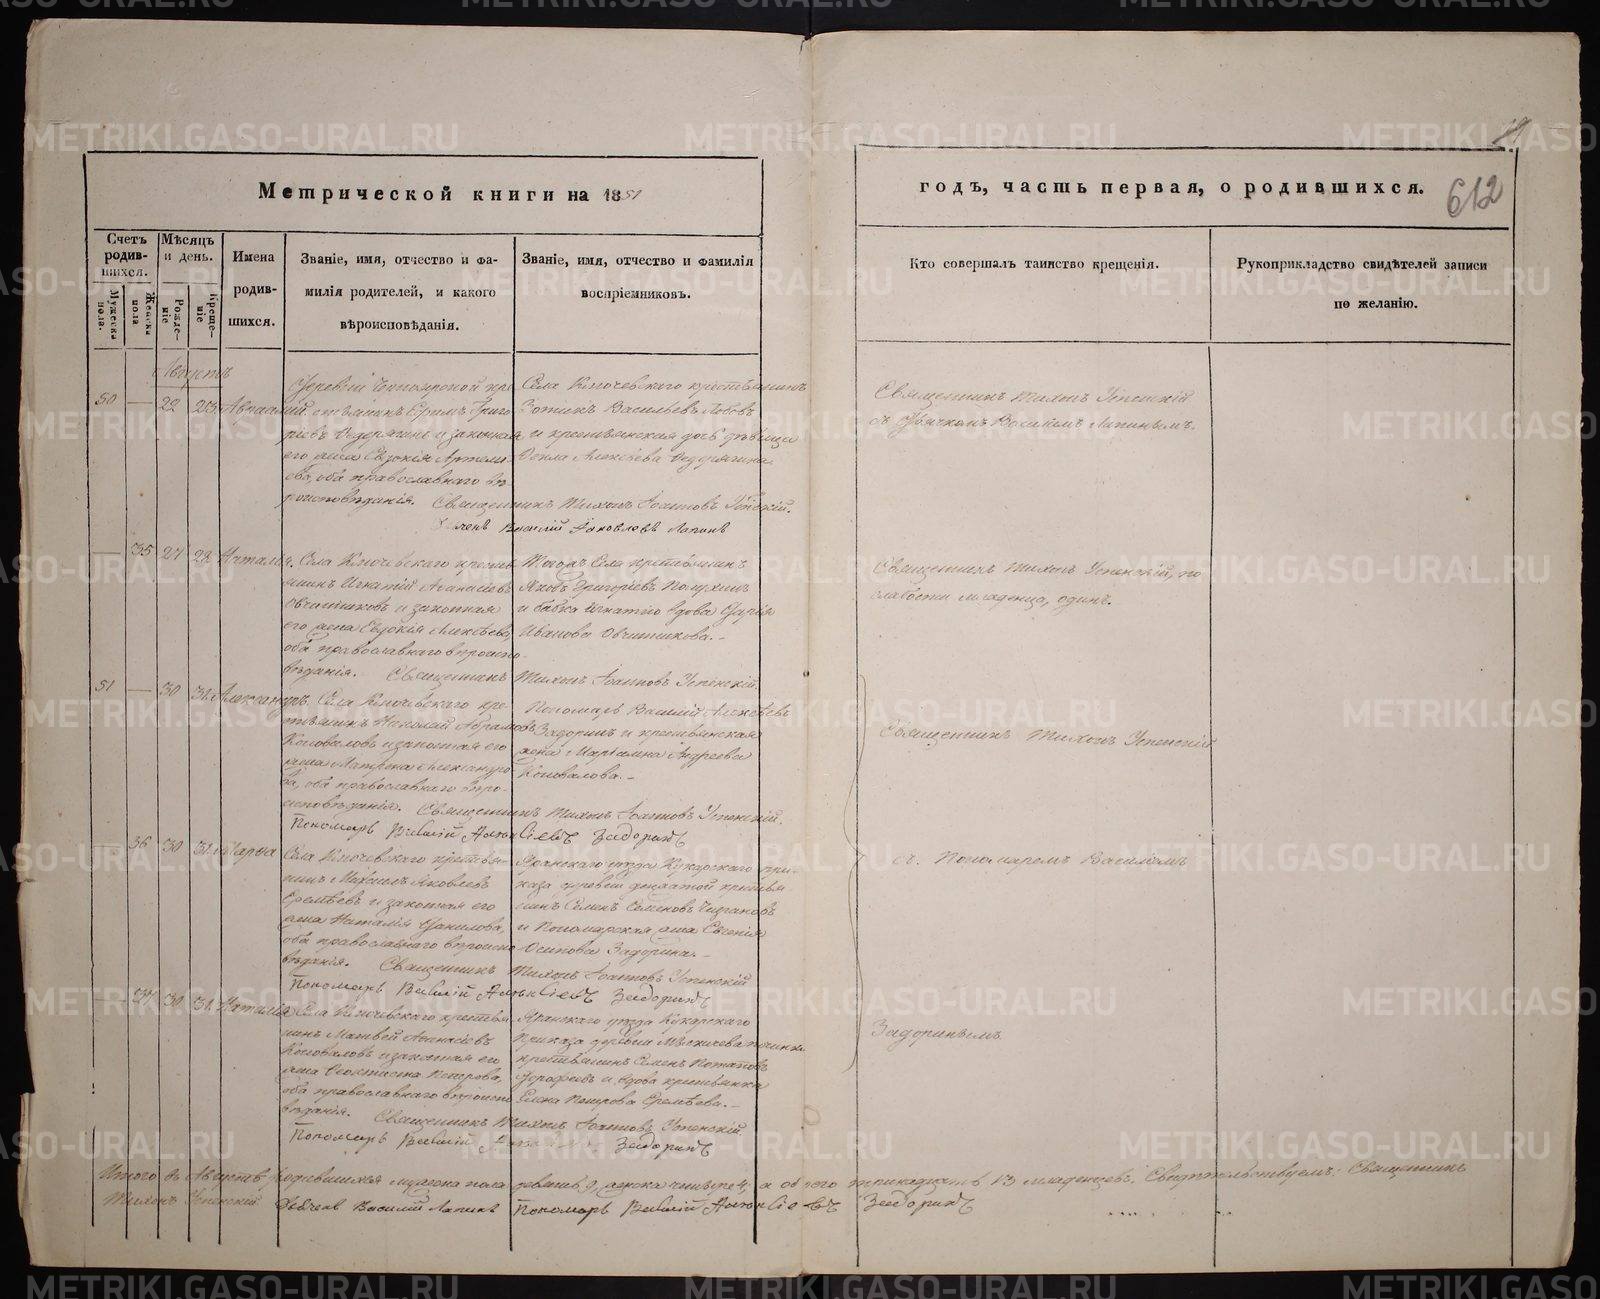 612
Метрической книги на 1851
годъ, часть первая, о родившихся.
Счетъ родив-шихся.
Мужеска пола.
Женска пола
Мѣсяцъ и день.
Рожде-ніе
Креще-ніе
Имена родив-шихся.
Званіе, имя, отчество и фа-
милія родителей, и какого
вѣроисповѣданія.
Званіе, имя, отчество и фамилія
воспріемниковъ.
Кто совершалъ таинство крещенія.
Рукоприкладство свидѣтелей записи
по желанію.
Августъ
50 — 22 23
его жена Евдокія Артемі-
ева, оба православнаго вѣ-
роисповѣданія. Священникъ Тихонъ Іоанновъ Успенскій.
Василій Яковлевъ Лапинъ
Села Ключевского крестьянинъ
Зотикъ Васильевъ
и крестьянская дочь дѣвица
Ѳекла Алексѣева Ѳедорягина
Священникъ Тихонъ Успенскій
съ Дьячкомъ Василіемъ Лапинымъ.
— 35 27 28 Наталія.
Села Ключевского кресть-
янинъ Игнатій Аѳанасіевъ
Овчинниковъ и законная
его жена Евдокія Алексѣева,
оба православнаго вѣроиспо-
вѣданія. Священникъ Тихонъ Іоанновъ Успенскій.
Тогожъ Села крестьянинъ
Яковъ Григорьевъ Полухинъ
и бабка Игнатію вдова Дарія
Иванова Овчинникова.-
Священникъ Тихонъ Успенскій, по
слабости младенца, одинъ.
51 — 30 31. Александръ.
Села Ключевского кре-
стьянинъ Николай Абрамовъ
Коноваловъ и законная его
жена Матрена Александро-
ва, оба православнаго вѣро-
исповѣданія. Священникъ Тихонъ Іоанновъ Успенскій.
Пономарь Василій Алексіевъ Задоринъ
Пономарь Василій Алексіевъ
Задоринъ и крестьянская
жена Маріамна Андреева
Коновалова.-
Священникъ Тихонъ Успенскій
— 36 30 31. Марѳа
Села Ключевского крестья-
нинъ Михаилъ Яковлевъ
Еремѣевъ и законная его
жена Наталія Данилова,
оба православнаго вѣроиспо-
вѣданія. Священникъ Тихонъ Іоанновъ Успенскій
Пономарь Василій Алексіевъ Задоринъ
Яранскаго уѣзда Кукарскаго при-
каза деревни крестья-
нинъ Семенъ Семеновъ
и Пономарская жена Евгенія
Осипова Задорина.-
съ Пономаремъ Василіемъ
— 37 30 31. Наталія
Села Ключевского крестья-
нинъ Матвей Аѳанасіевъ
Коноваловъ и законная его
жена Ѳеоктиста Петрова,
оба православнаго вѣроиспо-
вѣданія. Священникъ Тихонъ Іоанновъ Успенскій
Пономарь Василій Задоринъ
Яранскаго уѣзда Кукарскаго
Приказа деревни починка
крестьянинъ Семенъ Потаповъ
Дорофеевъ и вдова крестьянка
Елена Петрова Еремѣева.-
Задоринымъ.
Итого въ Августѣ родившихся мужеска пола девять 9, женска четыре 4, а обоего тринадцать 13 младенцевъ. Свидѣтельствуемъ: Священникъ
Тихонъ Успенскій. Дьячекъ Василій Лапинъ Пономарь Василій Алексіевъ Задоринъ
METRIKI.GASO-URAL.RU